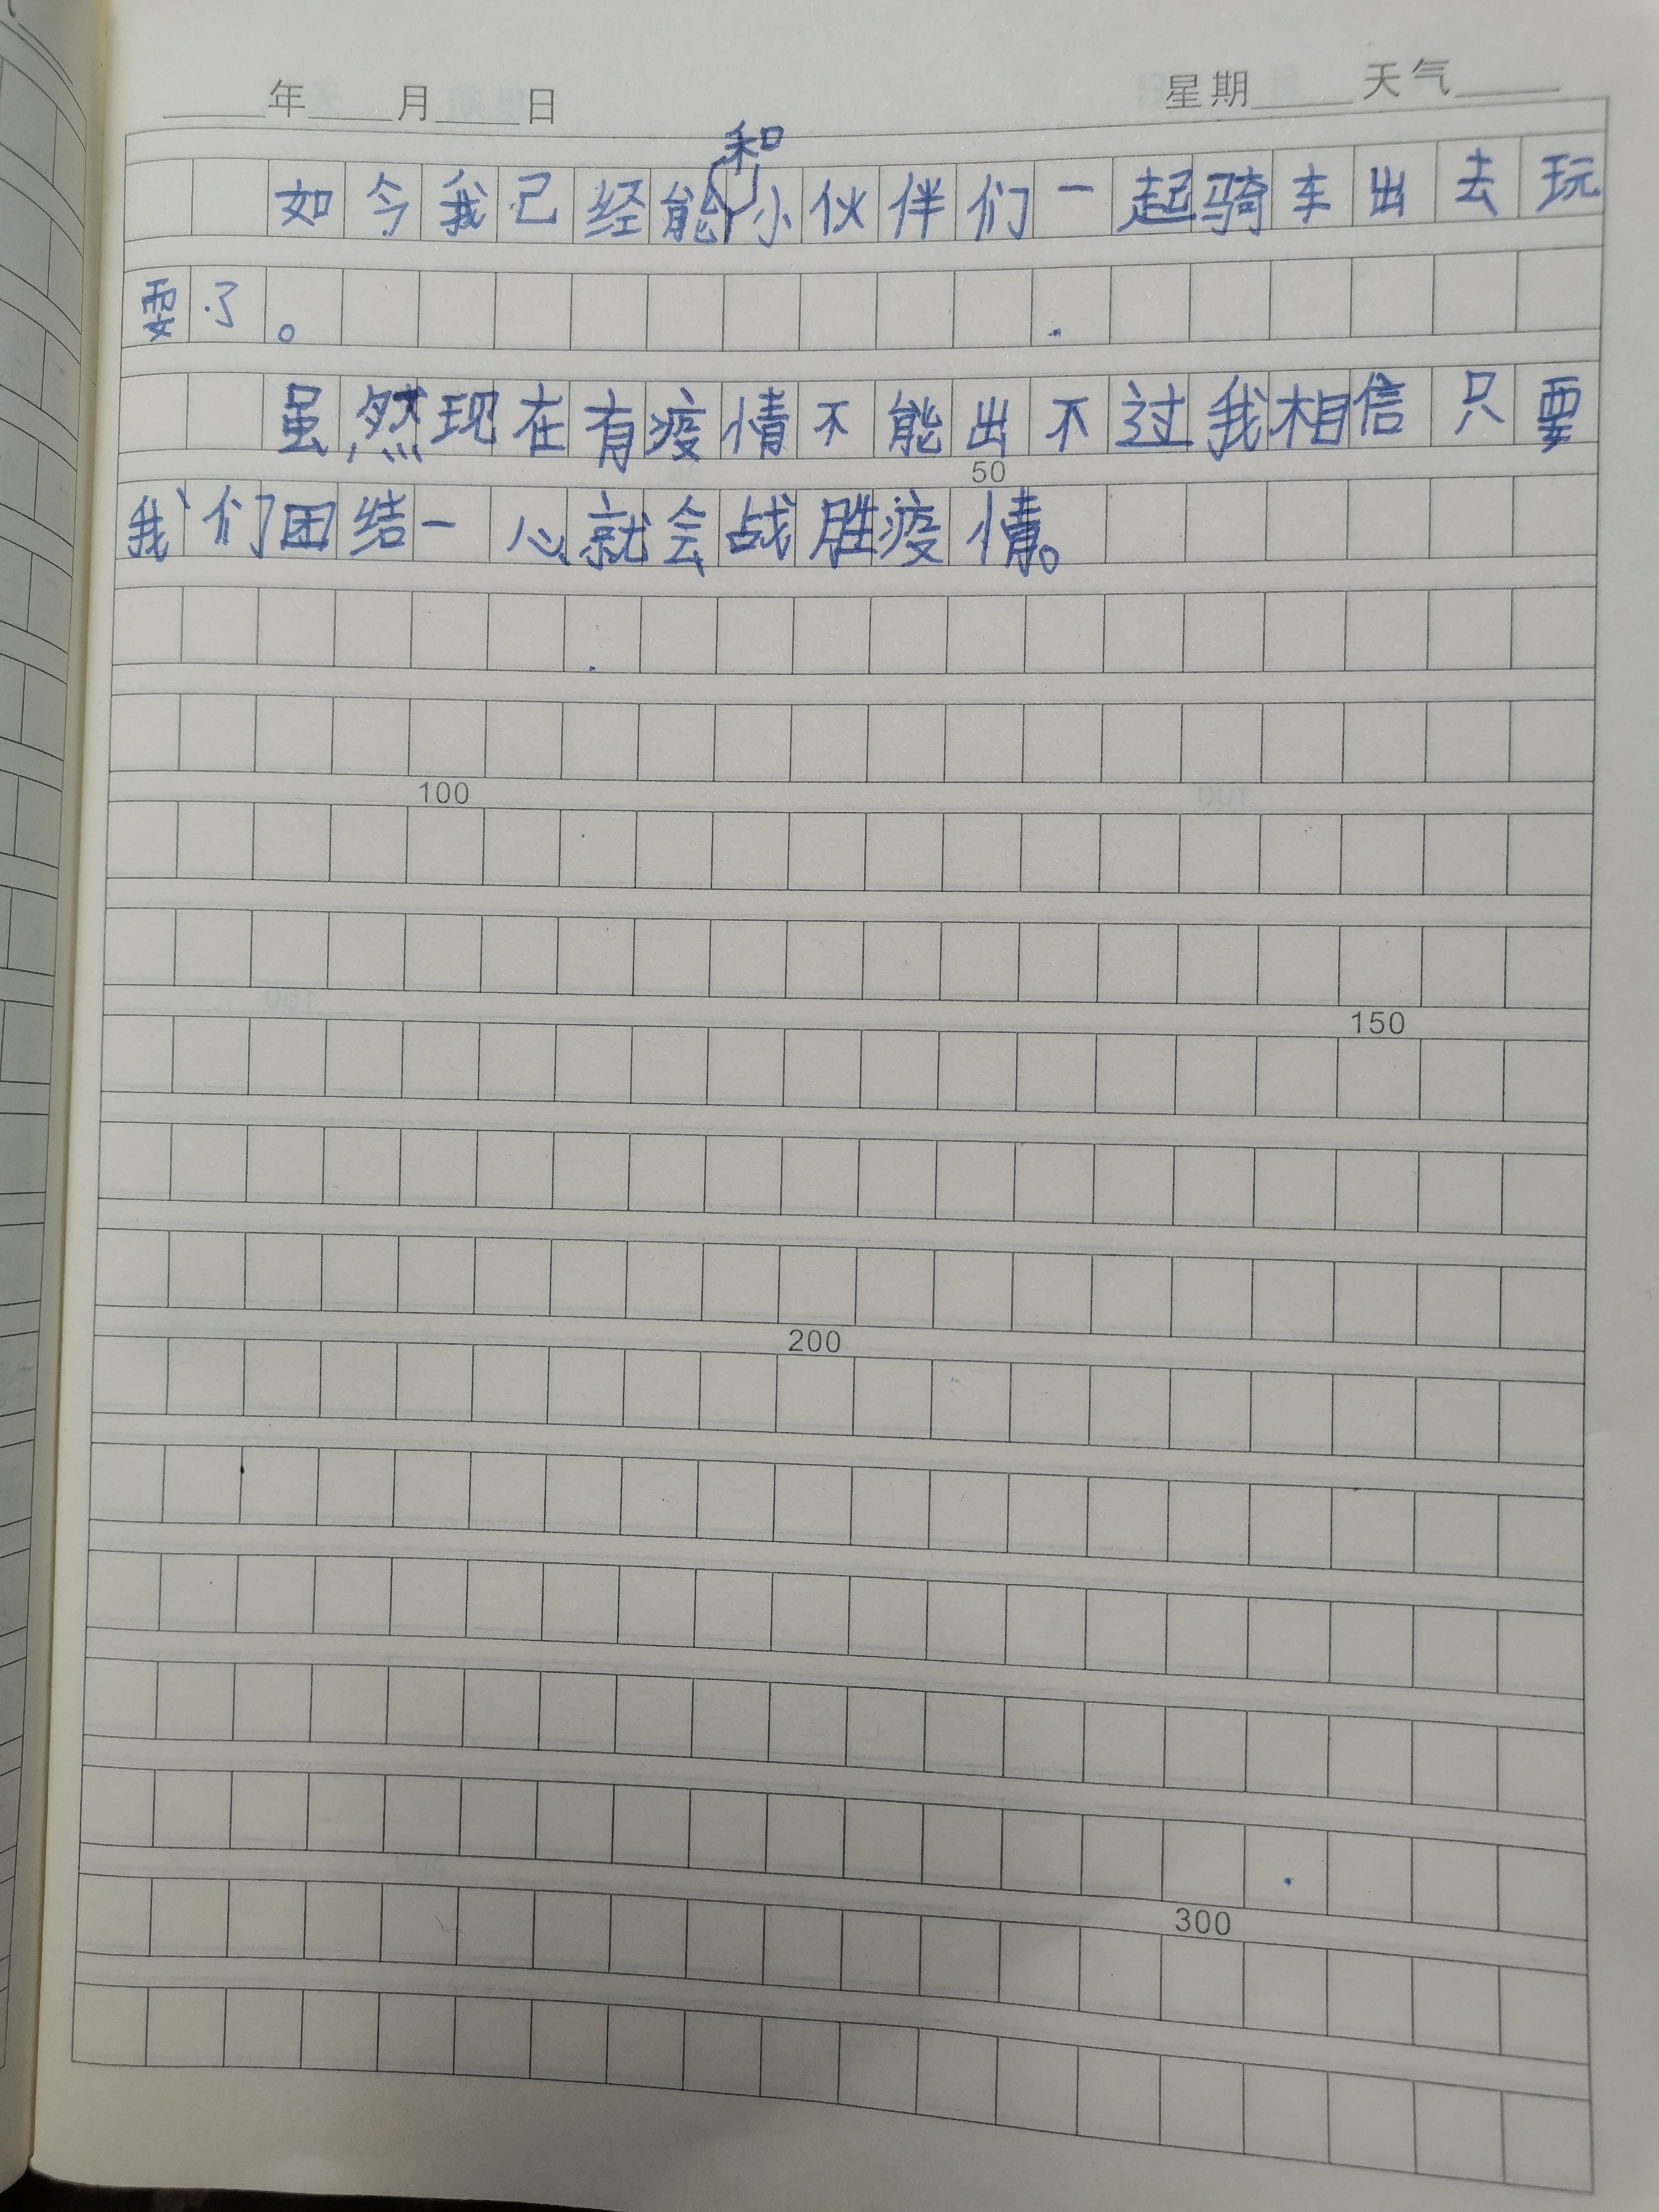 年 月 日 星期 天气
如今我己经能和小伙伴们一起骑车出去玩
耍了。
虽然现在有疫情不能出不过我相信只要
50
我们团结一心就会战胜疫情。
100
150
200
300